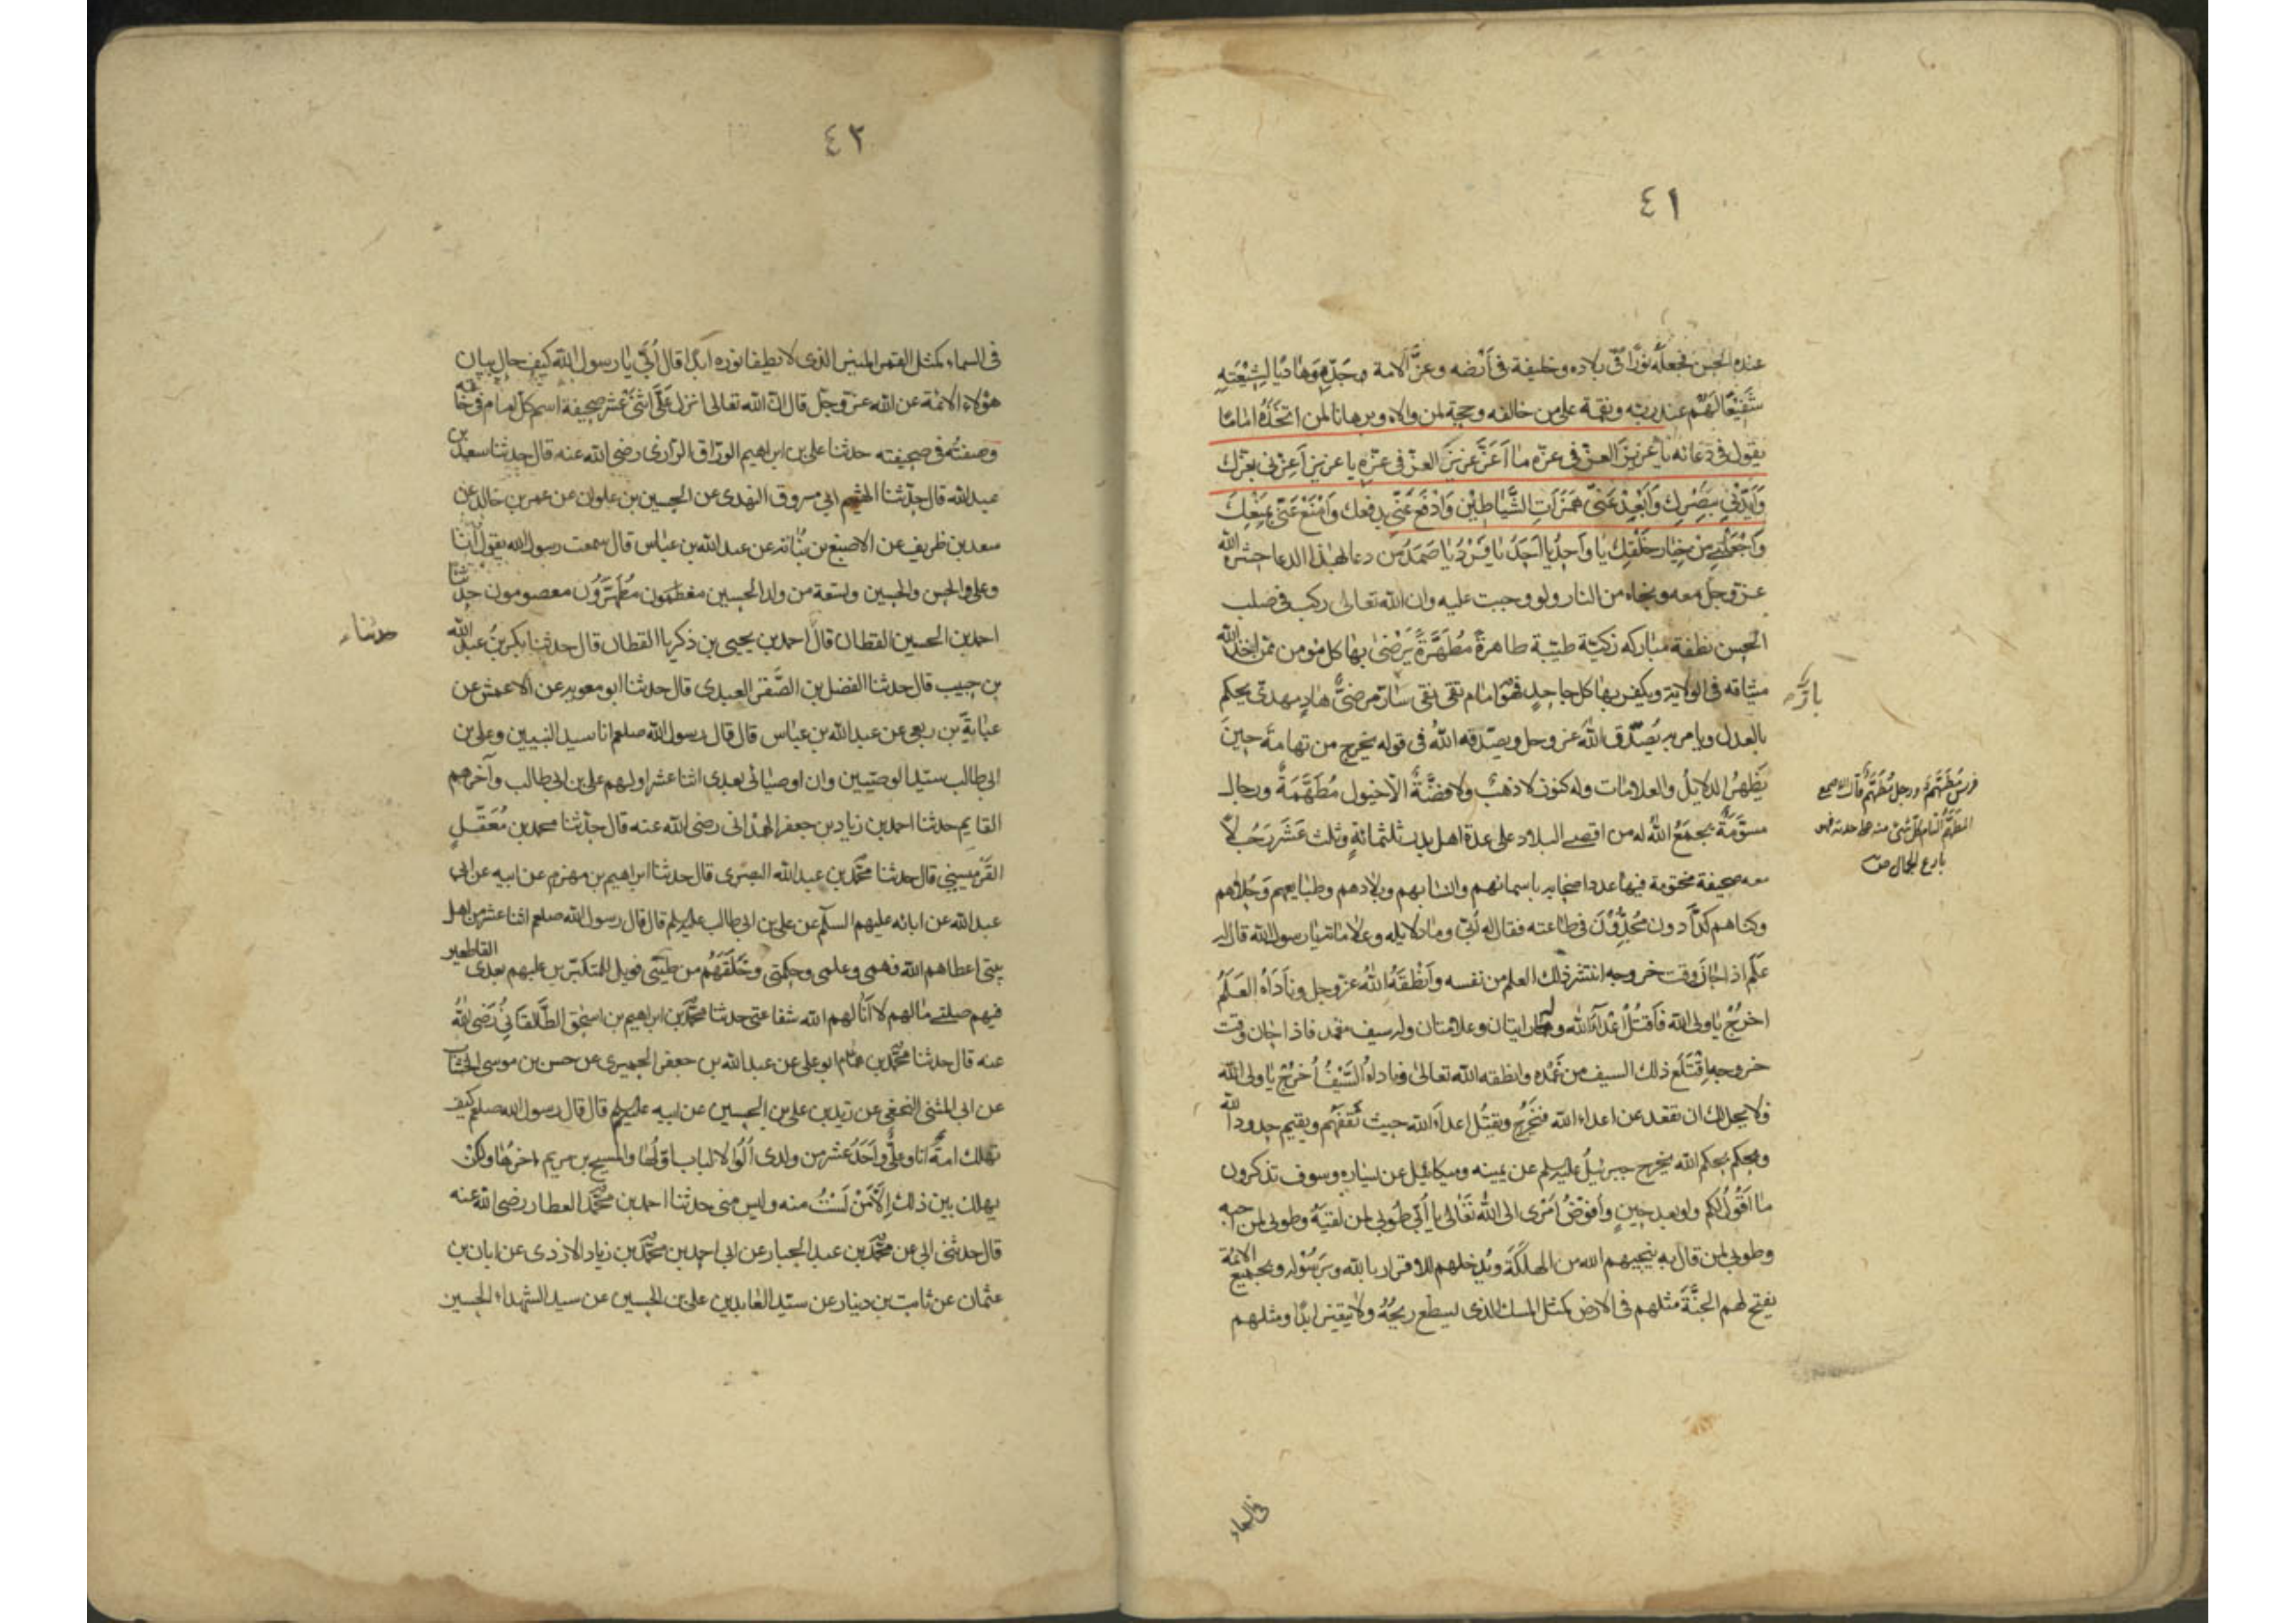 ٤١
عنده الحسن فجعله نورًا فى بلاده وخليفة فى أرضه وعزًّا لامة جدّه وهاديًا لشيعته
شفيعًا لهم عند ربه ونقمة على من خالفه وحجة لمن والاه وبرهانا لمن اتخذه امامًا
يقول فى دعائه يا عزيز العز فى عزه ما أعزّ عزيز العز فى عزه يا عزيز أعزنى بعزك
وأيدنى بنصرك وأبعد عنى همزات الشياطين وادفع عنى بدفعك وامنع عنى بمنعك
واجعلنى من خيار خلقك يا واحد يا احد يا فرد يا صمد من دعا بهذا الدعا حشره الله
عز وجل معه ونجاه من النار ولو وجبت عليه وان الله تعالى ركب فى صلب
الحسن نطفة مباركه زكيّة طيّبة طاهرة مُطَهَّرة يَرْضىٰ بها كل مؤمن ممن اخذ الله
ميثاقه فى الولاية ويكفر بها كل جاحد فهو امام تقى نقى سارّ مرضىٌّ هادٍ مهدى يحكم
بارّ
بالعدل ويامر به يُصَدِّق الله عز وجل ويصدّقه الله فى قوله يخرج من تهامة حين
يَظهرُ الدلايلُ والعلامات وله كنوز لا ذهبٌ ولا فضَّةٌ الّا خيول مُطَهَّمَةٌ ورجال
فرس مُطَهَّمٌ ورجل مُطَهَّمٌ قال الاصمعى
المطهّم التام كلّ شئ منه على حدته فهو
بارع الجمال ص
مسوَّمَةٌ يجمَعُ الله له من اقصى البلاد على عدة اهل بدر ثلثمائةٍ وثلث عَشَرَ رَجُلًا
معه صحيفة مختومة فيها عدد اصحابه باسمائهم وانسابهم وبلادهم وطبايعهم وحُلاهم
وكناهم كدّادون مُجِدُّون فى طاعته فقال له أبىّ وما دلايله وعلاماته يا رسول الله قال له
عَلَم اذا حان وقت خروجه انتشر ذلك العلم من نفسه وأنْطَقَهُ الله عز وجل ونَادَاهُ العَلَمُ
اخرُجْ يا ولى الله فَاقتُلْ اعْدَاءَ الله وله رايتان وعلامتان وله سيف مغمد فاذا حان وقت
خروجه اقْتَلَع ذلك السيف من غمْده وانطقه الله تعالىٰ فناداهُ السَّيْفُ أخرُجْ يا ولى الله
فلا يحل لك ان تقعد عن اعداء الله فيَخْرُجُ ويقتُلُ اعداءَ الله حيث ثَقِفَهُم ويقيم حدود الله
ويحكم بحكم الله يخرج جبرئيلُ عليه السلم عن يمينه وميكائيل عن يساره وسوف تذكرون
ما أَقُولُ لكم ولو بعد حينٍ وأُفَوِّضُ أَمْرى الى الله تَعَالىٰ يا أُبَىّ طوبى لمن لقيَهُ وطوبى لمن احبه
وطوبى لمن قال به ينجيهم الله من الهلكَة ويُدخلهم للاقرار بالله وبرَسُوله وبجميع الائمّة
يفتح لهم الجنَّةَ مثلهم فى الارض كمثل المسك الذى يسطع ريحُهُ ولا يتغير ابدًا ومثلهم
فى السماء
٤٢
فى السماء كمثل القمر المنير الذى لا يطفا نوره ابدًا قال أُبَىّ يا رسول الله كيف حال بيان
هؤلاء الائمة عن الله عز وجل قال ان الله تعالى انزل عَلَىَّ اثنَىْ عَشر صحيفة اسم كل امام فى خاتمه
وصفته فى صحيفته حدثنا على بن ابراهيم الورّاق الرازى رضى الله عنه قال حدثنا سعد بن
عبد الله قال حدّثنا الهيثم ابى مسروق النهدى عن الحسين بن علوان عن عمر بن خالد عن
سعد بن ظريف عن الاصبغ بن نُبَاته عن عبد الله بن عبّاس قال سمعت رسول الله يقول أنا
وعلى والحسن والحسين وتسعة من ولد الحسين مُطَهَّرُون معصومون حدّثنا
احمد بن الحسين القطان قال احمد بن يحيى بن ذكريا القطان قال حدثنا بكر بن عبد الله
حدثناء
بن حبيب قال حدثنا الفضل بن الصَّقر العبدى قال حدثنا ابو معويه عن الاعمش عن
عَبَايَة بن ربعى عن عبد الله بن عبّاس قال قال رسول الله صلعم انا سيد النبيين وعلى بن
ابى طالب سيّد الوصيّين وان اوصيائى بعدى اثنا عشر اولهم على بن ابى طالب وآخرهم
القايم حدثنا احمد بن زياد بن جعفر الهمْدانى رضى الله عنه قال حدّثنا محمد بن مُعَقّلٍ
القَرْميسينى قال حدثنا محمّد بن عبد الله البصرى قال حدثنا ابراهيم بن مهزم عن ابيه عن ابى
عبد الله عن ابائه عليهم السلم عن على بن ابى طالب عليه السلم قال قال رسول الله صلعم اثنا عشر من اهل
بيتى اعطاهم الله فهمى وعلمى وحكمتى وخَلَقَهُم من طينتى فويل للمتكبّرين عليهم بعدى القاطعين
فيهم صلتى ما لهم لا أنالهم الله شفاعتى حدثنا محمّد بن ابراهيم بن اسحٰق الطَّالقانى رَضىَ الله
عنه قال حدثنا محمّد بن همّام ابو على عن عبد الله بن جعفر الحميرى عن حسن بن موسى الخشّاب
عن ابى المثنى النخعى عن زيد بن على بن الحسين عن ابيه عليه السلم قال قال رسول الله صلعم كيف
تهلك امةٌ انا وعلىٌّ واحَدَ عشر من ولدى أُلُوا الالباب اوّلُها والمسيح بن مريم اخرُها ولكن
يهلك بين ذلك إلّا مَنْ لَسْتُ منه وليس منى حدثنا احمد بن محمّد العطار رضى الله عنه
قال حدثنى ابى عن محمّد بن عبد الجبار عن ابى احمد بن محمّد بن زياد الازدى عن ابان بن
عثمان عن ثابت بن دينار عن سيّد العابدين على بن الحسين عن سيد الشهداء الحسين